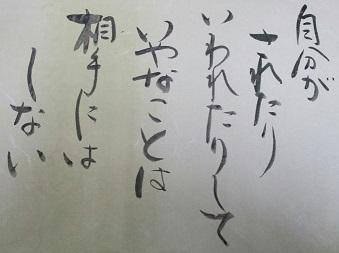 自分が
されたり
いわれたりして
いやなことは
相手には
しない